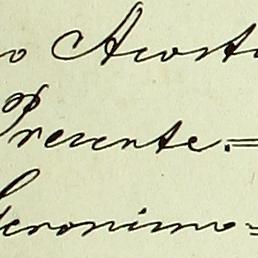 o Acosta
Presente.=
Geronimo=